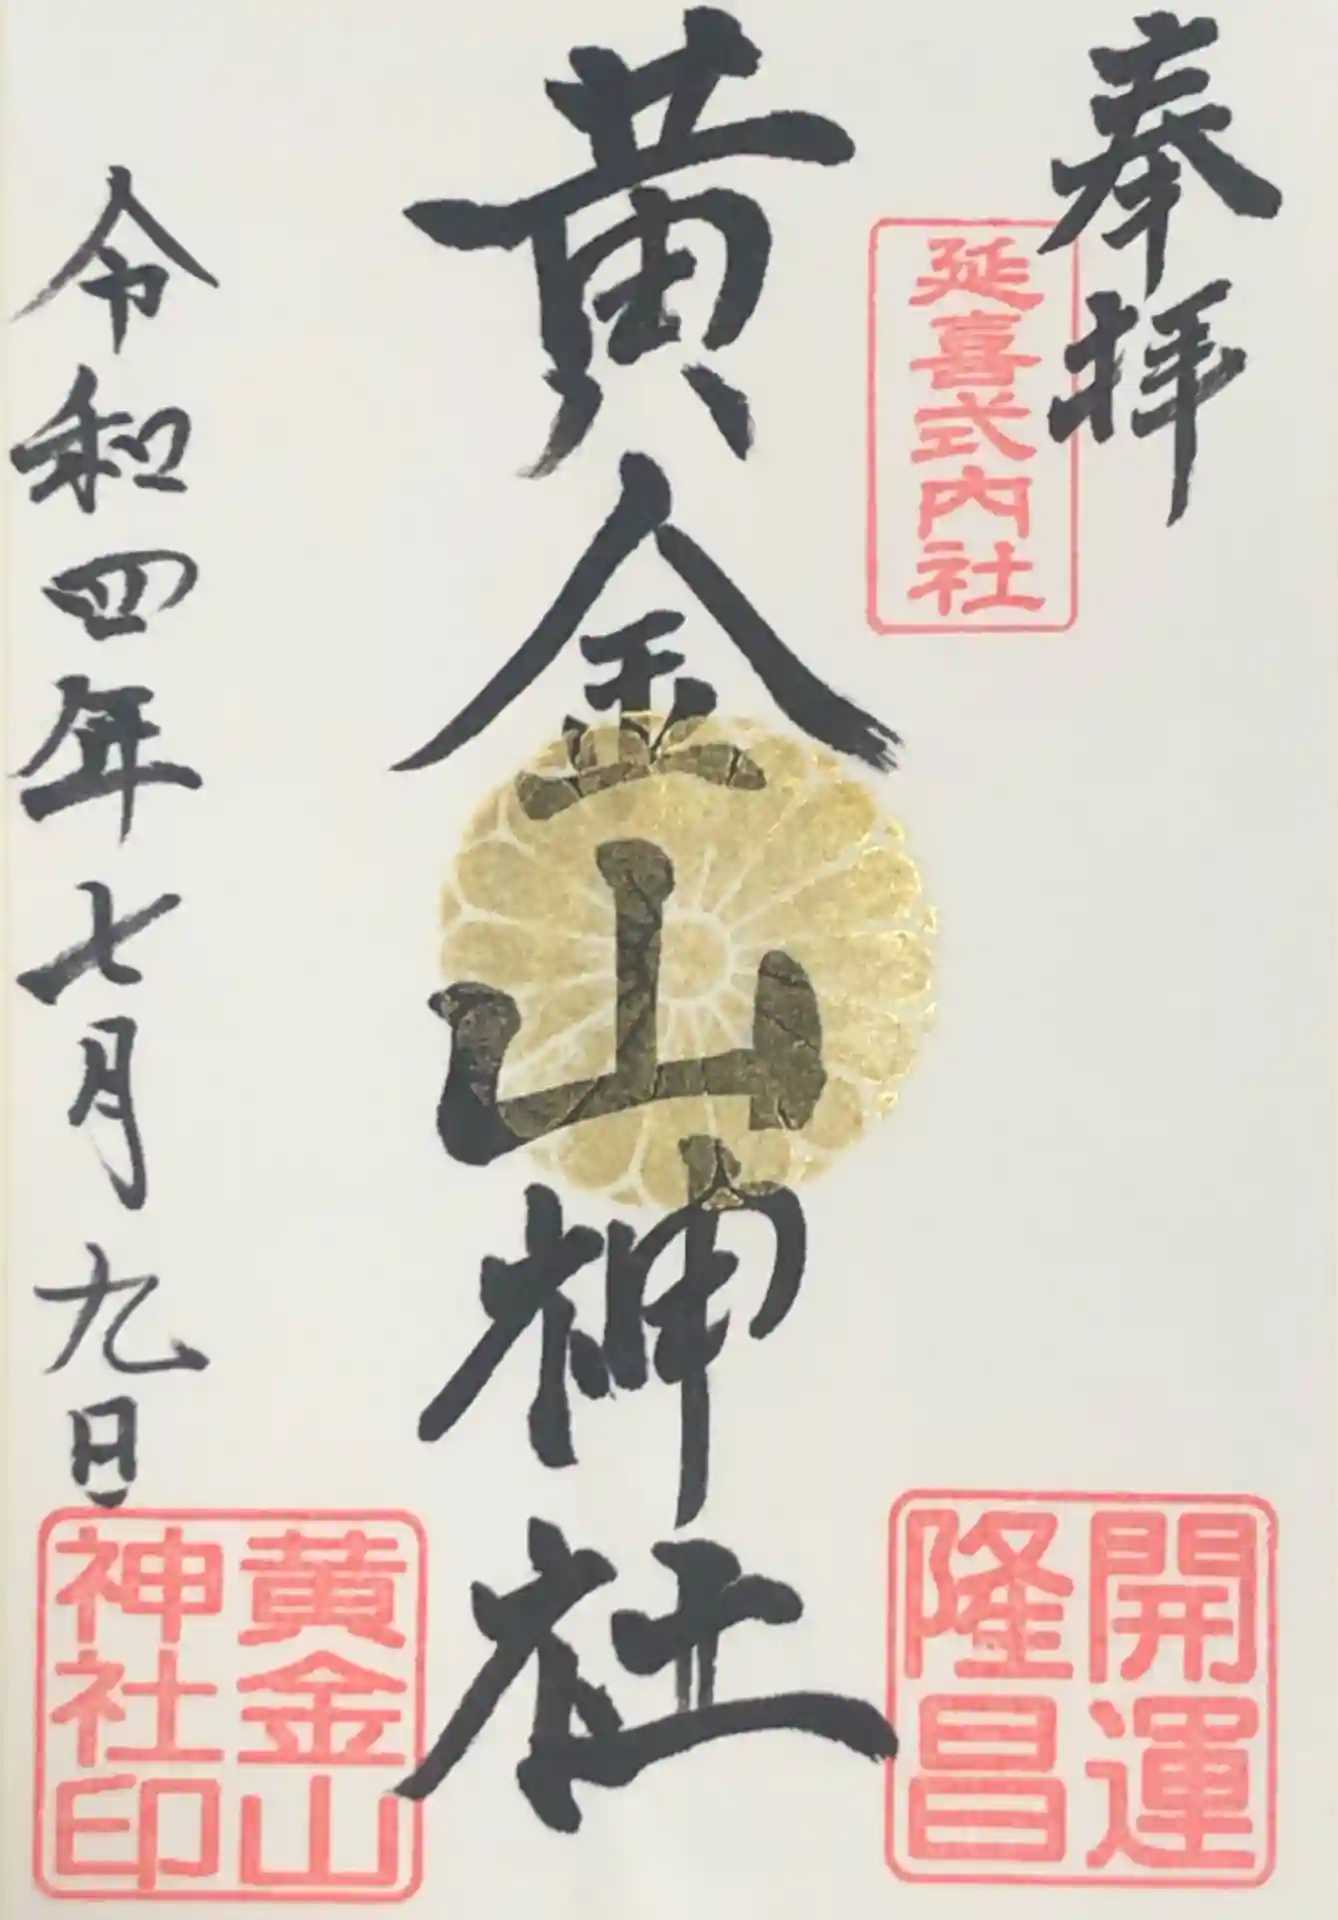 奉拝
延喜式内社
開運
隆昌
黄金山神社
令和四年七月九日
黄金山
神社印